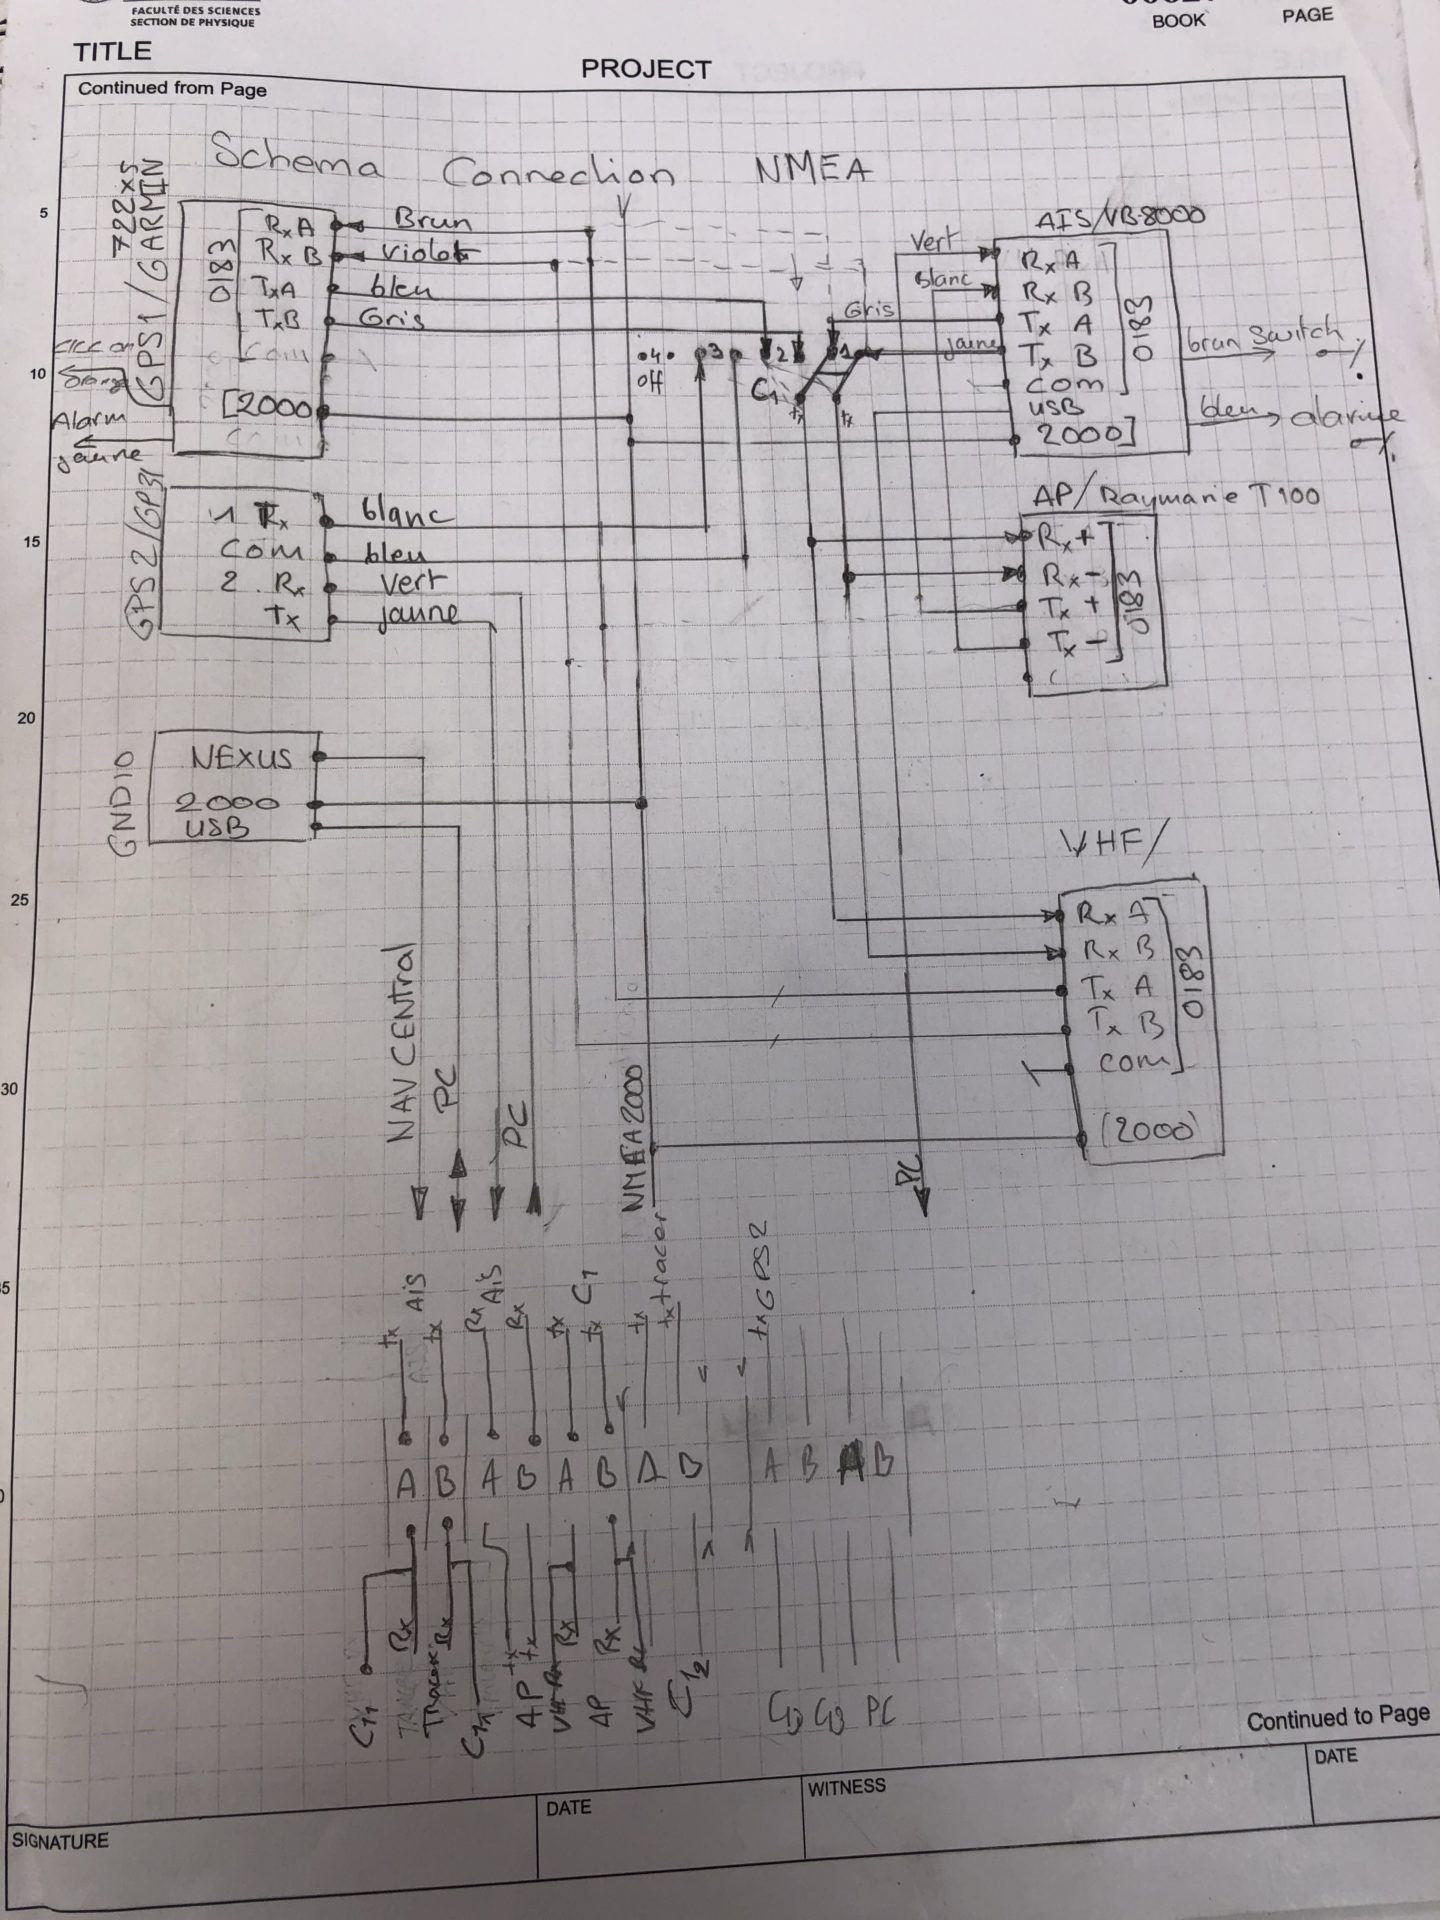 FACULTÉ DES SCIENCES
SECTION DE PHYSIQUE
BOOK PAGE
TITLE
PROJECT
Continued from Page
Schema Connection NMEA
5
10
15
20
25
30
GPS1/GARMIN
722xs
0183
RxA
RxB
TxA
TxB
Com
[2000
Brun
violet
bleu
Gris
Orange
Alarm
jaune
.4.
off
3
2
1
C1
tx
tx
AIS/VB8000
Vert
Blanc
Gris
jaune
RxA
RxB
TxA
TxB
Com
USB
2000]
0183
brun Switch
bleu alarme
GPS2/GP31
1 Tx
Com
2. Rx
Tx
blanc
bleu
vert
jaune
AP/Raymarie T100
Rx+
Rx-
Tx+
Tx-
0183
GND10
NEXUS
2000
USB
VHF/
RxA
RxB
TxA
TxB
com
(2000)
0183
NAV CENTRal
PC
PC
NMEA2000
PC
tx
AIS
tx
Rx
AIS
Rx
tx
tx C1
tx
tx tracer
tx GPS2
A B A B A B A B A B A B
C11
Rx
Rx
AP tx
tx
VHF Rx
Rx
AP
Rx
VHF Rx
C12
PC
Continued to Page
SIGNATURE
DATE
WITNESS
DATE